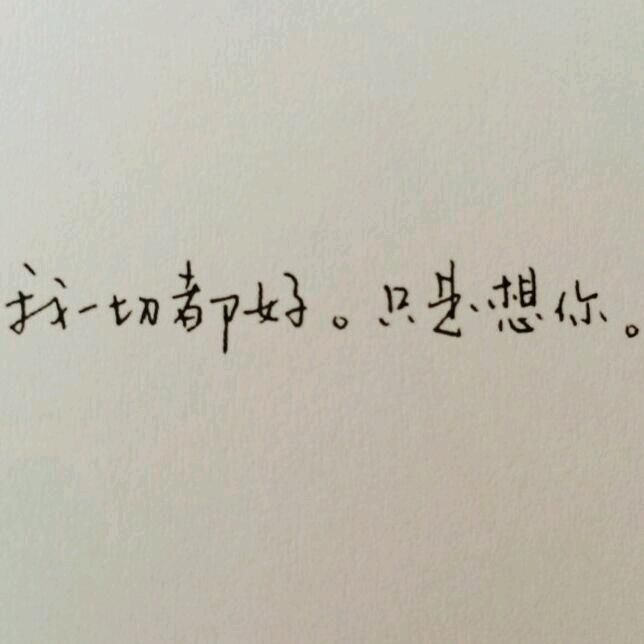 我一切都好。只是想你。